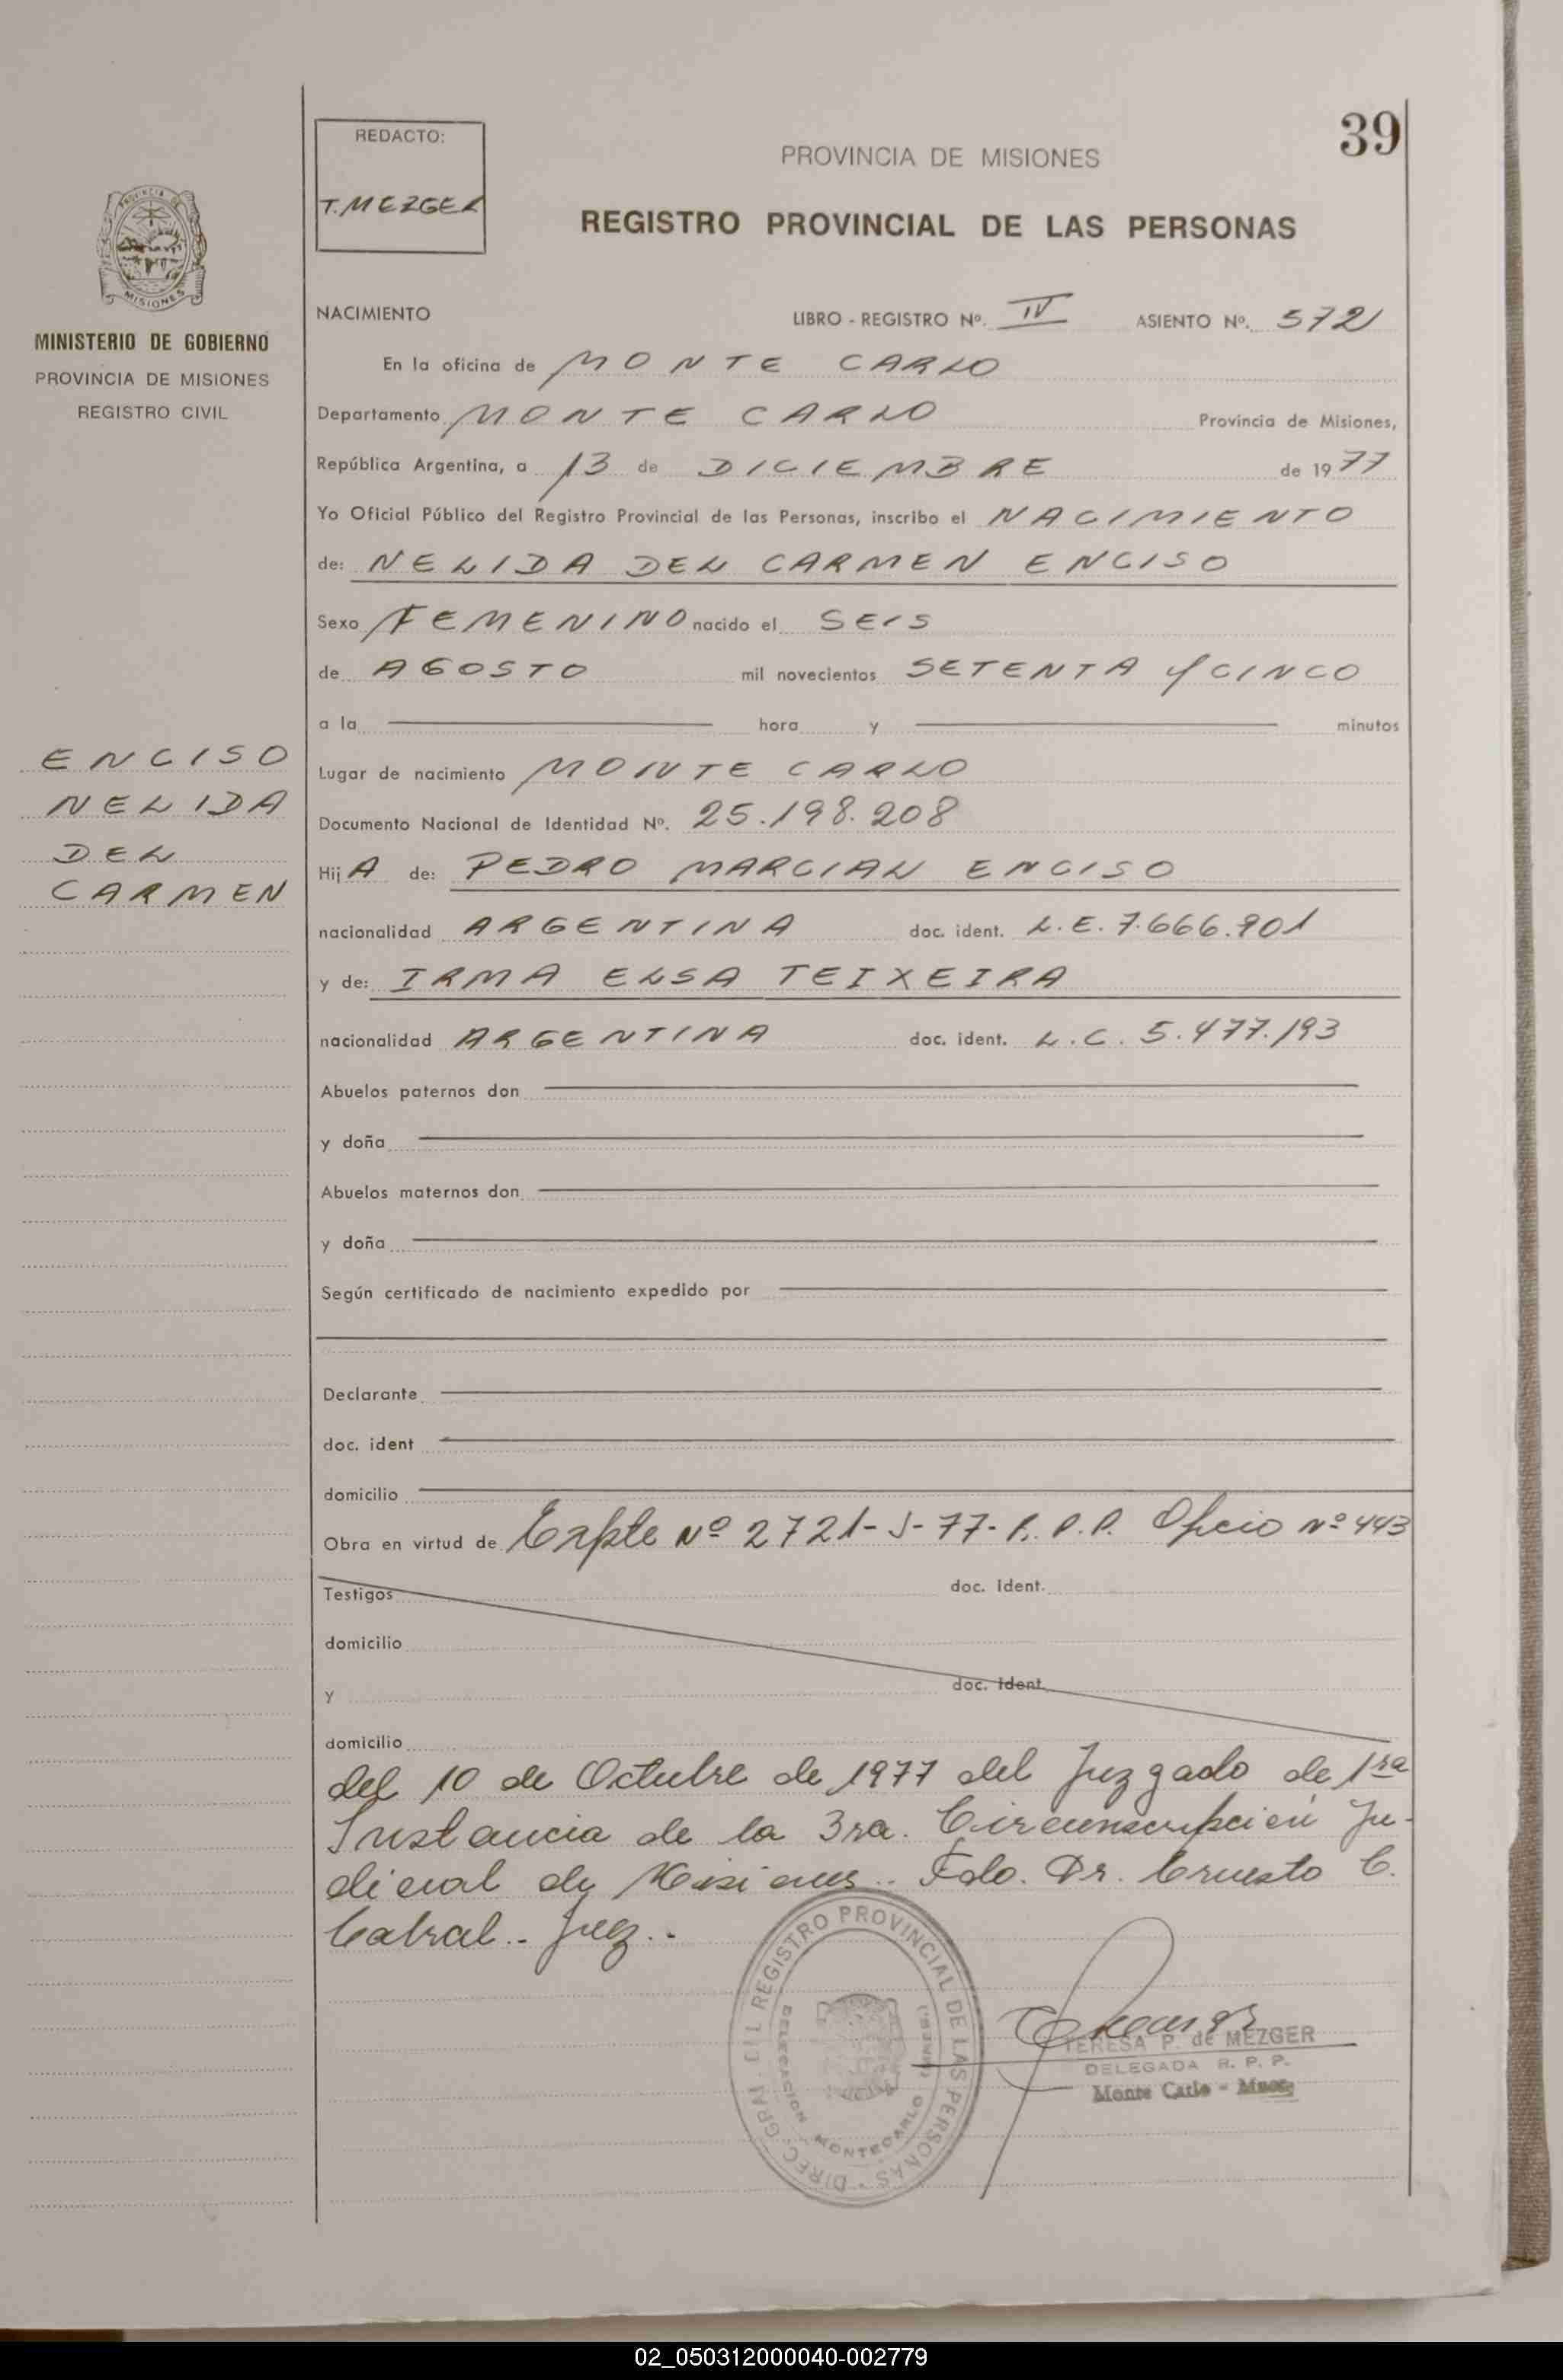 39
REDACTO:
T. MEZGER
PROVINCIA DE MISIONES
REGISTRO PROVINCIAL DE LAS PERSONAS
PROVINCIA DE
MISIONES
MINISTERIO DE GOBIERNO
PROVINCIA DE MISIONES
REGISTRO CIVIL
NACIMIENTO LIBRO - REGISTRO Nº. IV ASIENTO Nº. 572
En la oficina de MONTE CARLO
Departamento MONTE CARLO Provincia de Misiones,
República Argentina, a 13 de DICIEMBRE de 1977
Yo Oficial Público del Registro Provincial de las Personas, inscribo el NACIMIENTO
de: NELIDA DEL CARMEN ENCISO
Sexo FEMENINO nacido el SEIS
de AGOSTO mil novecientos SETENTA y CINCO
a la hora y minutos
ENCISO
NELIDA
DEL
CARMEN
Lugar de nacimiento MONTE CARLO
Documento Nacional de Identidad Nº. 25.198.208
Hij A de: PEDRO MARCIAL ENCISO
nacionalidad ARGENTINA doc. ident. L.E. 7.666.901
y de: IRMA ELSA TEIXEIRA
nacionalidad ARGENTINA doc. ident. L.C. 5.477.193
Abuelos paternos don
y doña
Abuelos maternos don
y doña
Según certificado de nacimiento expedido por
Declarante
doc. ident
domicilio
Obra en virtud de Expte Nº 2721-J-77- R.P.P. Oficio Nº 443
Testigos doc. Ident.
domicilio
y doc. Ident.
domicilio
del 10 de Octubre de 1977 del Juzgado de 1ra
Instancia de la 3ra. Circunscripción Ju-
dicial de Misiones.. Fdo. Dr. Ernesto C.
Cabral.. Juez..
DIREC. GRAL. DEL REGISTRO PROVINCIAL DE LAS PERSONAS
DELEGACION MONTECARLO (MISIONES)
TERESA P. de MEZGER
DELEGADA R. P. P.
Monte Carlo - Mnes
02_050312000040-002779